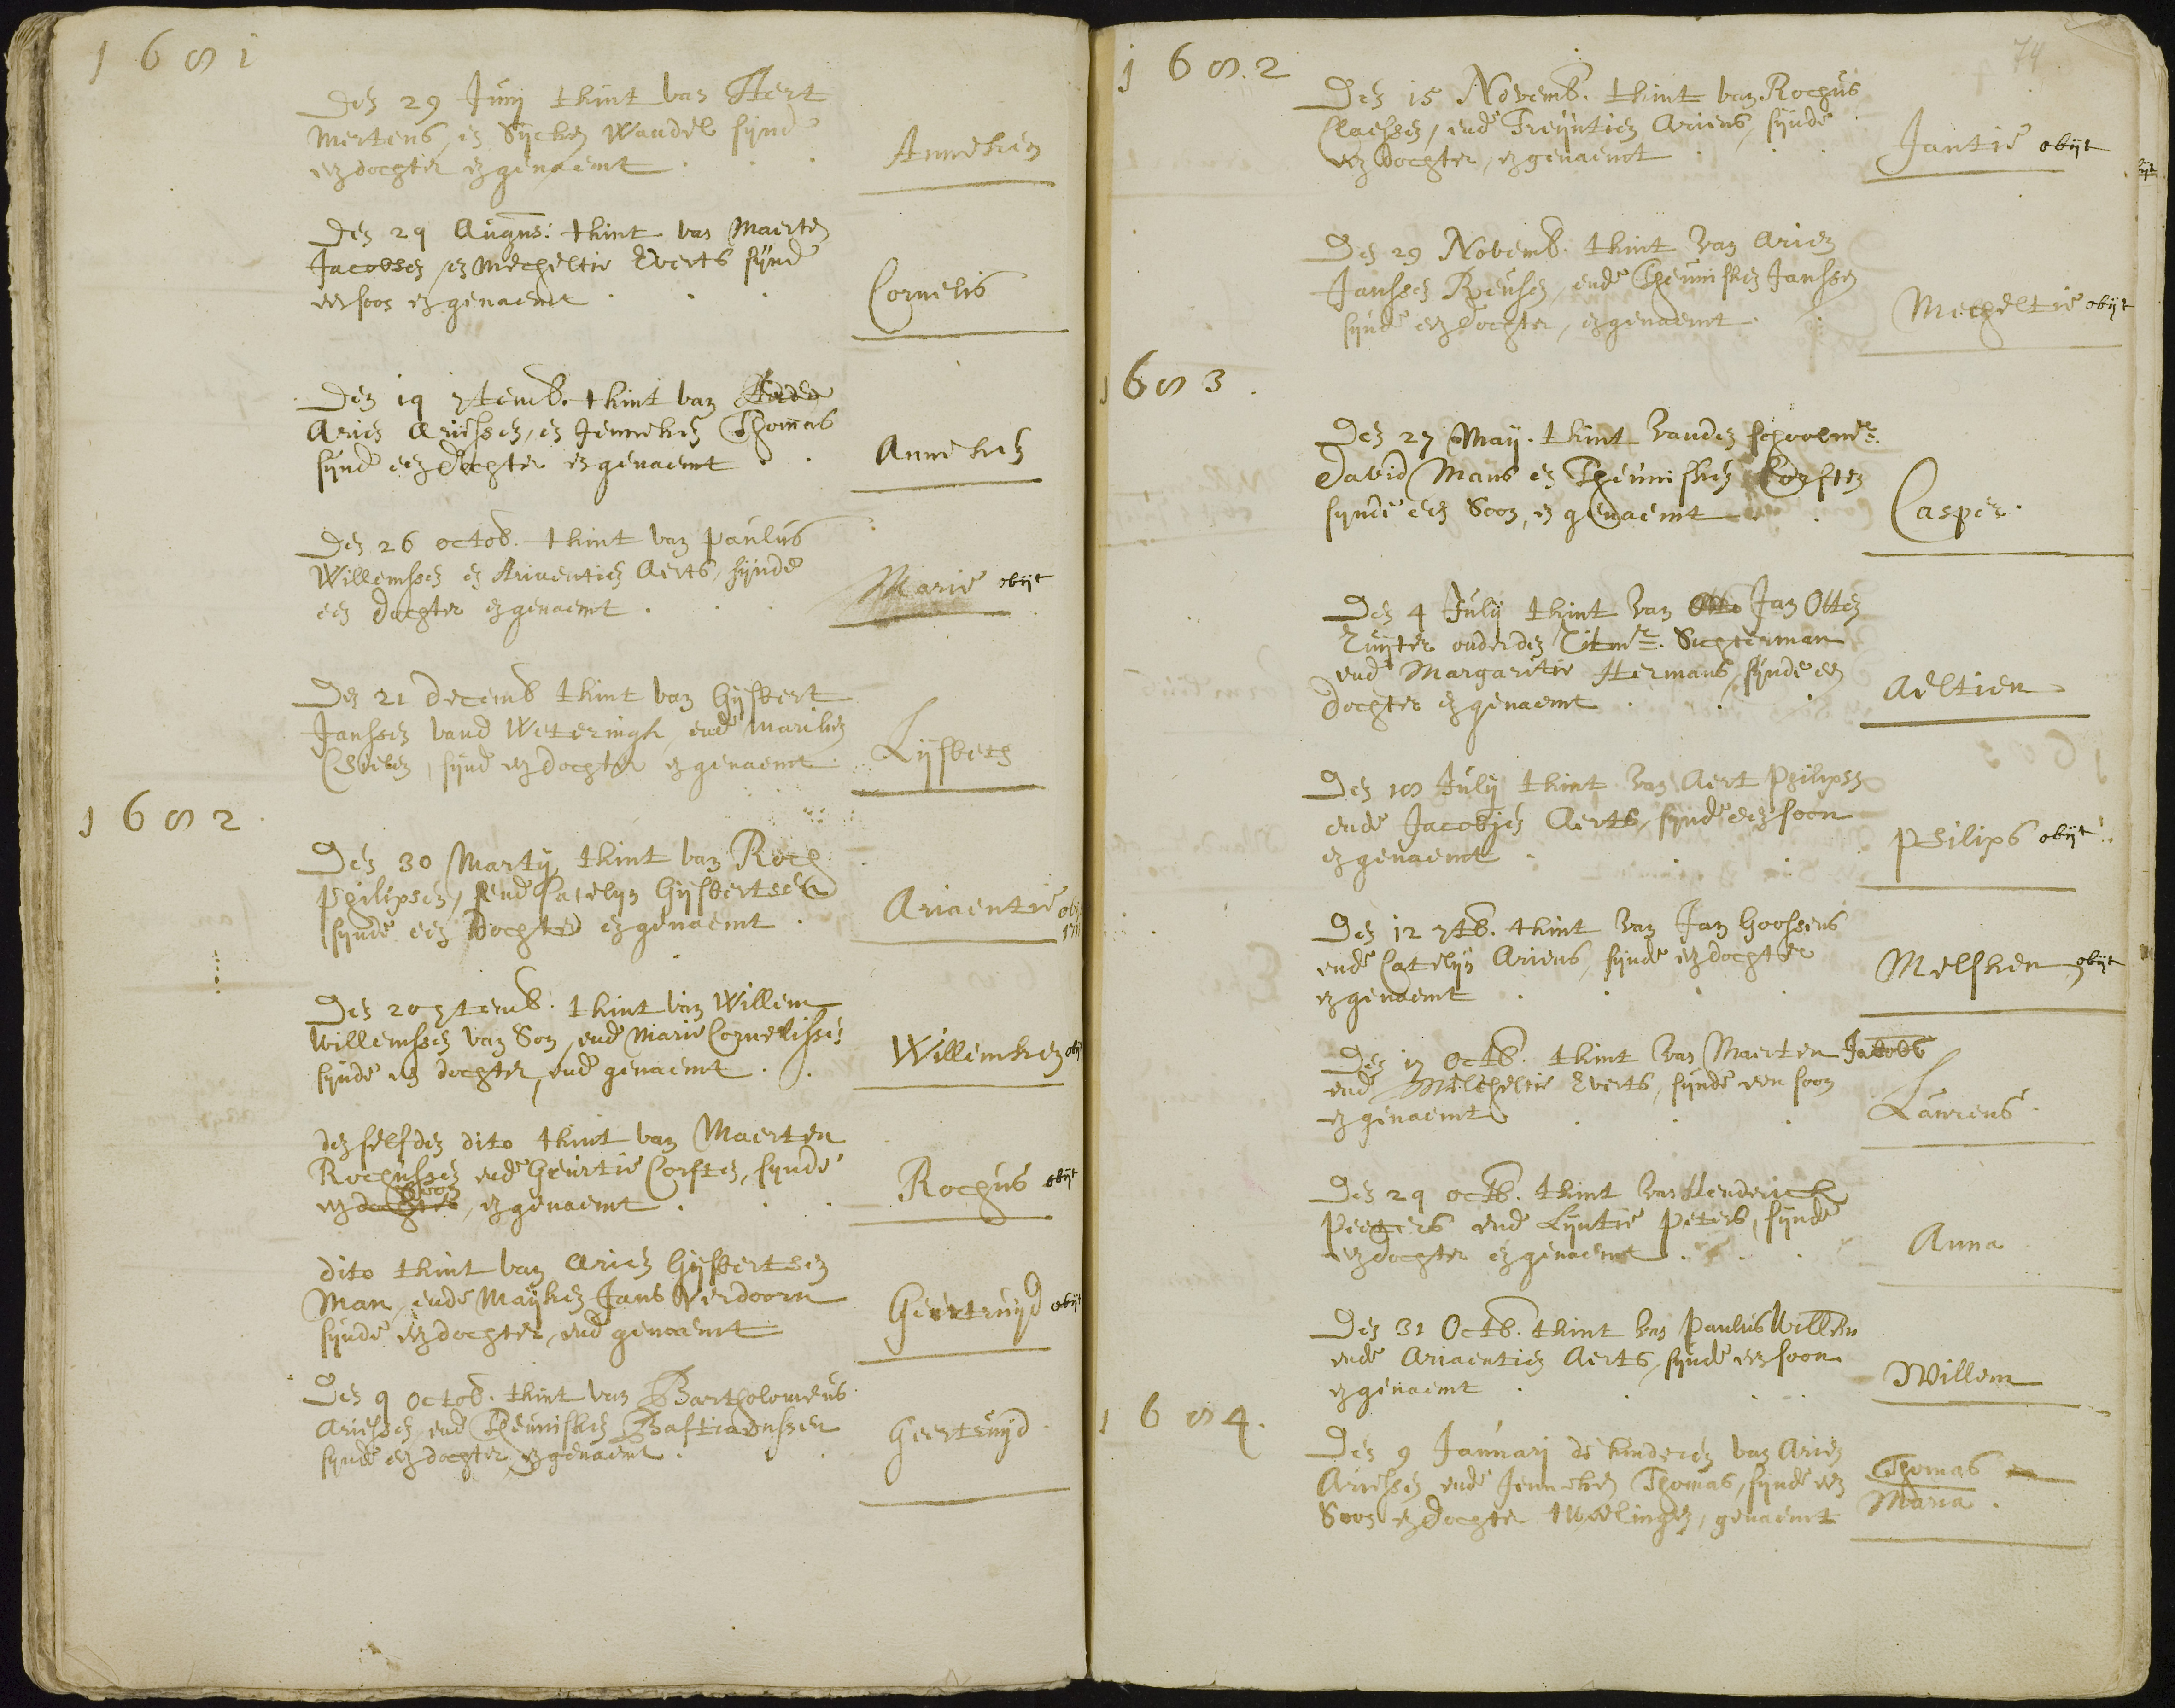 1681
Den 29 Junij t kint van Aert
Mertens, en Sijcken Wandel sijnde
een dochter en genaemt
Anneken
Den 29 Augus: t kint van Maerten
Jacobsen, en Mechseltie Everts sijnde
een soon en genaemt
Cornelis
Den 19 7temb. t kint van
Arien Ariessen, en Jenneken Thomas
sijnde een dochter en genaemt
Anneken
Den 26 octob. t kint van paulus
Willemssen en Ariaentien Aerts, sijnde
een dochter en genaemt
Marie obijt
Den 21 decemb t kint van Gijsbert
Janssen vand Weteringh, ende
sijnd een dochter en genaemt
Lijsbeth
1682
Den 30 Martij, t kint van Roch
Philipsen, ende Catelijn Gijsbertsen
sijnde een dochter en genaemt
Ariaentie obijt
Den 20 7temb. t kint van Willem
Willemssen van Son, ende Marie Cornelissen
sijnde een dochter, ende genaemt
Willemken obijt
den selfden dito t kint van Maerten
Rochussen ende Geurtie Corsten, sijnde
soon
een dochter, en genaemt
Rochus obijt
dito t kint van Arien Gijsbertsen
Man, ende Mayken Jans Verdoorn
sijnde een dochter, ende genaemt
Geertruijd obijt
Den 9 octob. t kint van Bartholomeus
Ariessen, ende Theunisken Bastiaenssen
sijnde een dochter, en genaemt
Geertruijd
1682
74
Den 15 Novemb. t kint van Rochus
Claessen, ende Treijntien Ariens, sijnde
een dochter, en genaemt
Jantie obijt
Den 29 Novemb. t kint van Arien
Janssen Reusen, ende Theunisken Janssen
sijnde een dochter, en genaemt
Mechteltie obijt
1683.
Den 27 Maij. t kint vanden schoolmr.
David Mans en Theunisken Corsten
sijnde een Soon, en genaemt
Casper.
Den 4 Julij t kint van Otto Jan Otten
Ruijter onder den Ritmr. Suchterman
ende Margaritie Hermans, sijnde een
dochter en genaemt
Aeltien
Den 18 Julij t kint van Aert Philipss
ende Jacobjen Aerts, sijnde een soon
en genaemt
Philips obijt
Den 12 7tb. t kint van Jan Goossens
ende Catelijn Ariens, sijnde een dochter
en genaemt
Melsken obijt
Den 17 Octb. t kint van Maerten Jacobs
ende Mechseltie Everts, sijnde een soon
en genaemt
Laurens
Den 29 octb. t kint van Henderick
Peeters ende Lijntie Peters, sijnde
een dochter en genaemt
Anna
Den 31 Octb. t kint van Paulus Willem
ende Ariaentien Aerts, sijnde een soon
en genaemt
Willem
1684.
Den 9 Januarij de kinderen van Arien
Ariessen ende Jenneken Thomas, sijnde een
Soon en dochter tweelingen, genaemt
Thomas en
Maria.